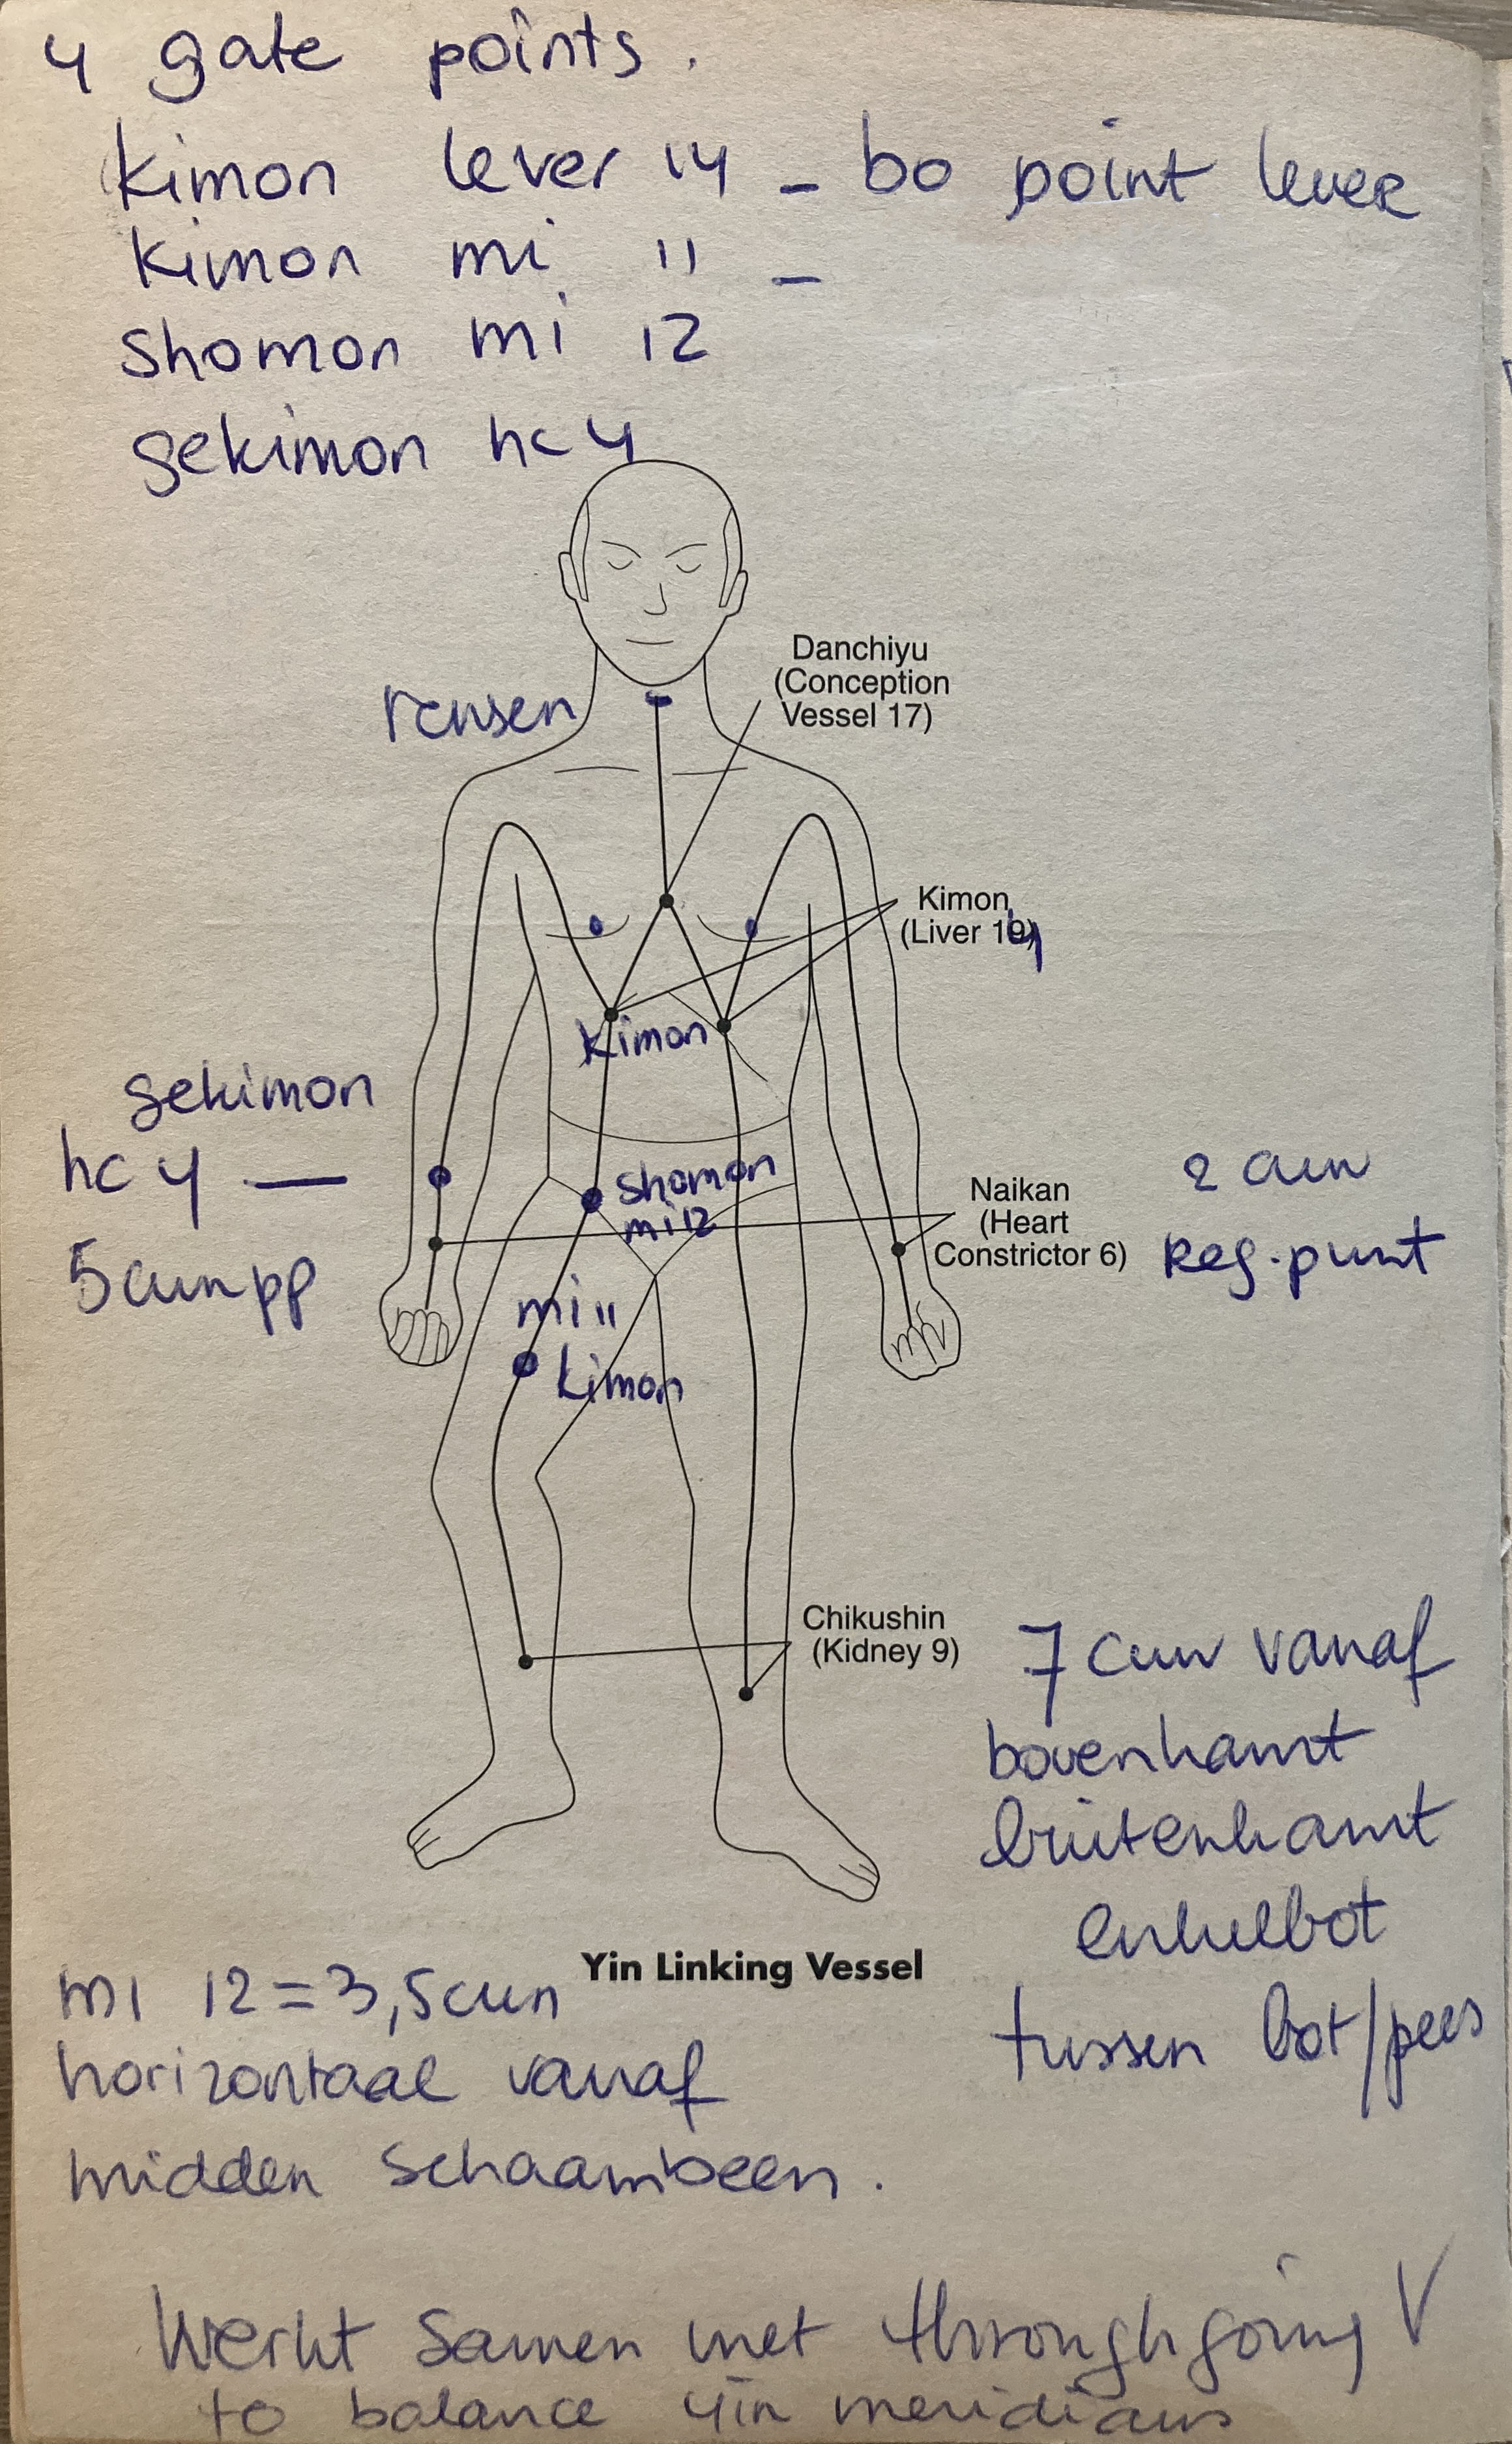 4 gate points.
Kimon lever 14 - bo point lever
Kimon mi 11 -
Shomon mi 12
Gekimon hc 4
rensen
Danchiyu
(Conception
Vessel 17)
Kimon
(Liver 14)
Kimon
gekimon
hc 4 —
5 cun pp
shomon
mi 12
Naikan
(Heart
Constrictor 6)
2 cun
Reg. punt
mi 11
kimon
Chikushin
(Kidney 9)
7 cun vanaf
bovenkamt
buitenkamt
enkelbot
tussen bot/pees
Yin Linking Vessel
mi 12 = 3,5 cun
horizontaal vanaf
midden schaambeen.
Werkt samen met throughgoing V
to balance yin meridians